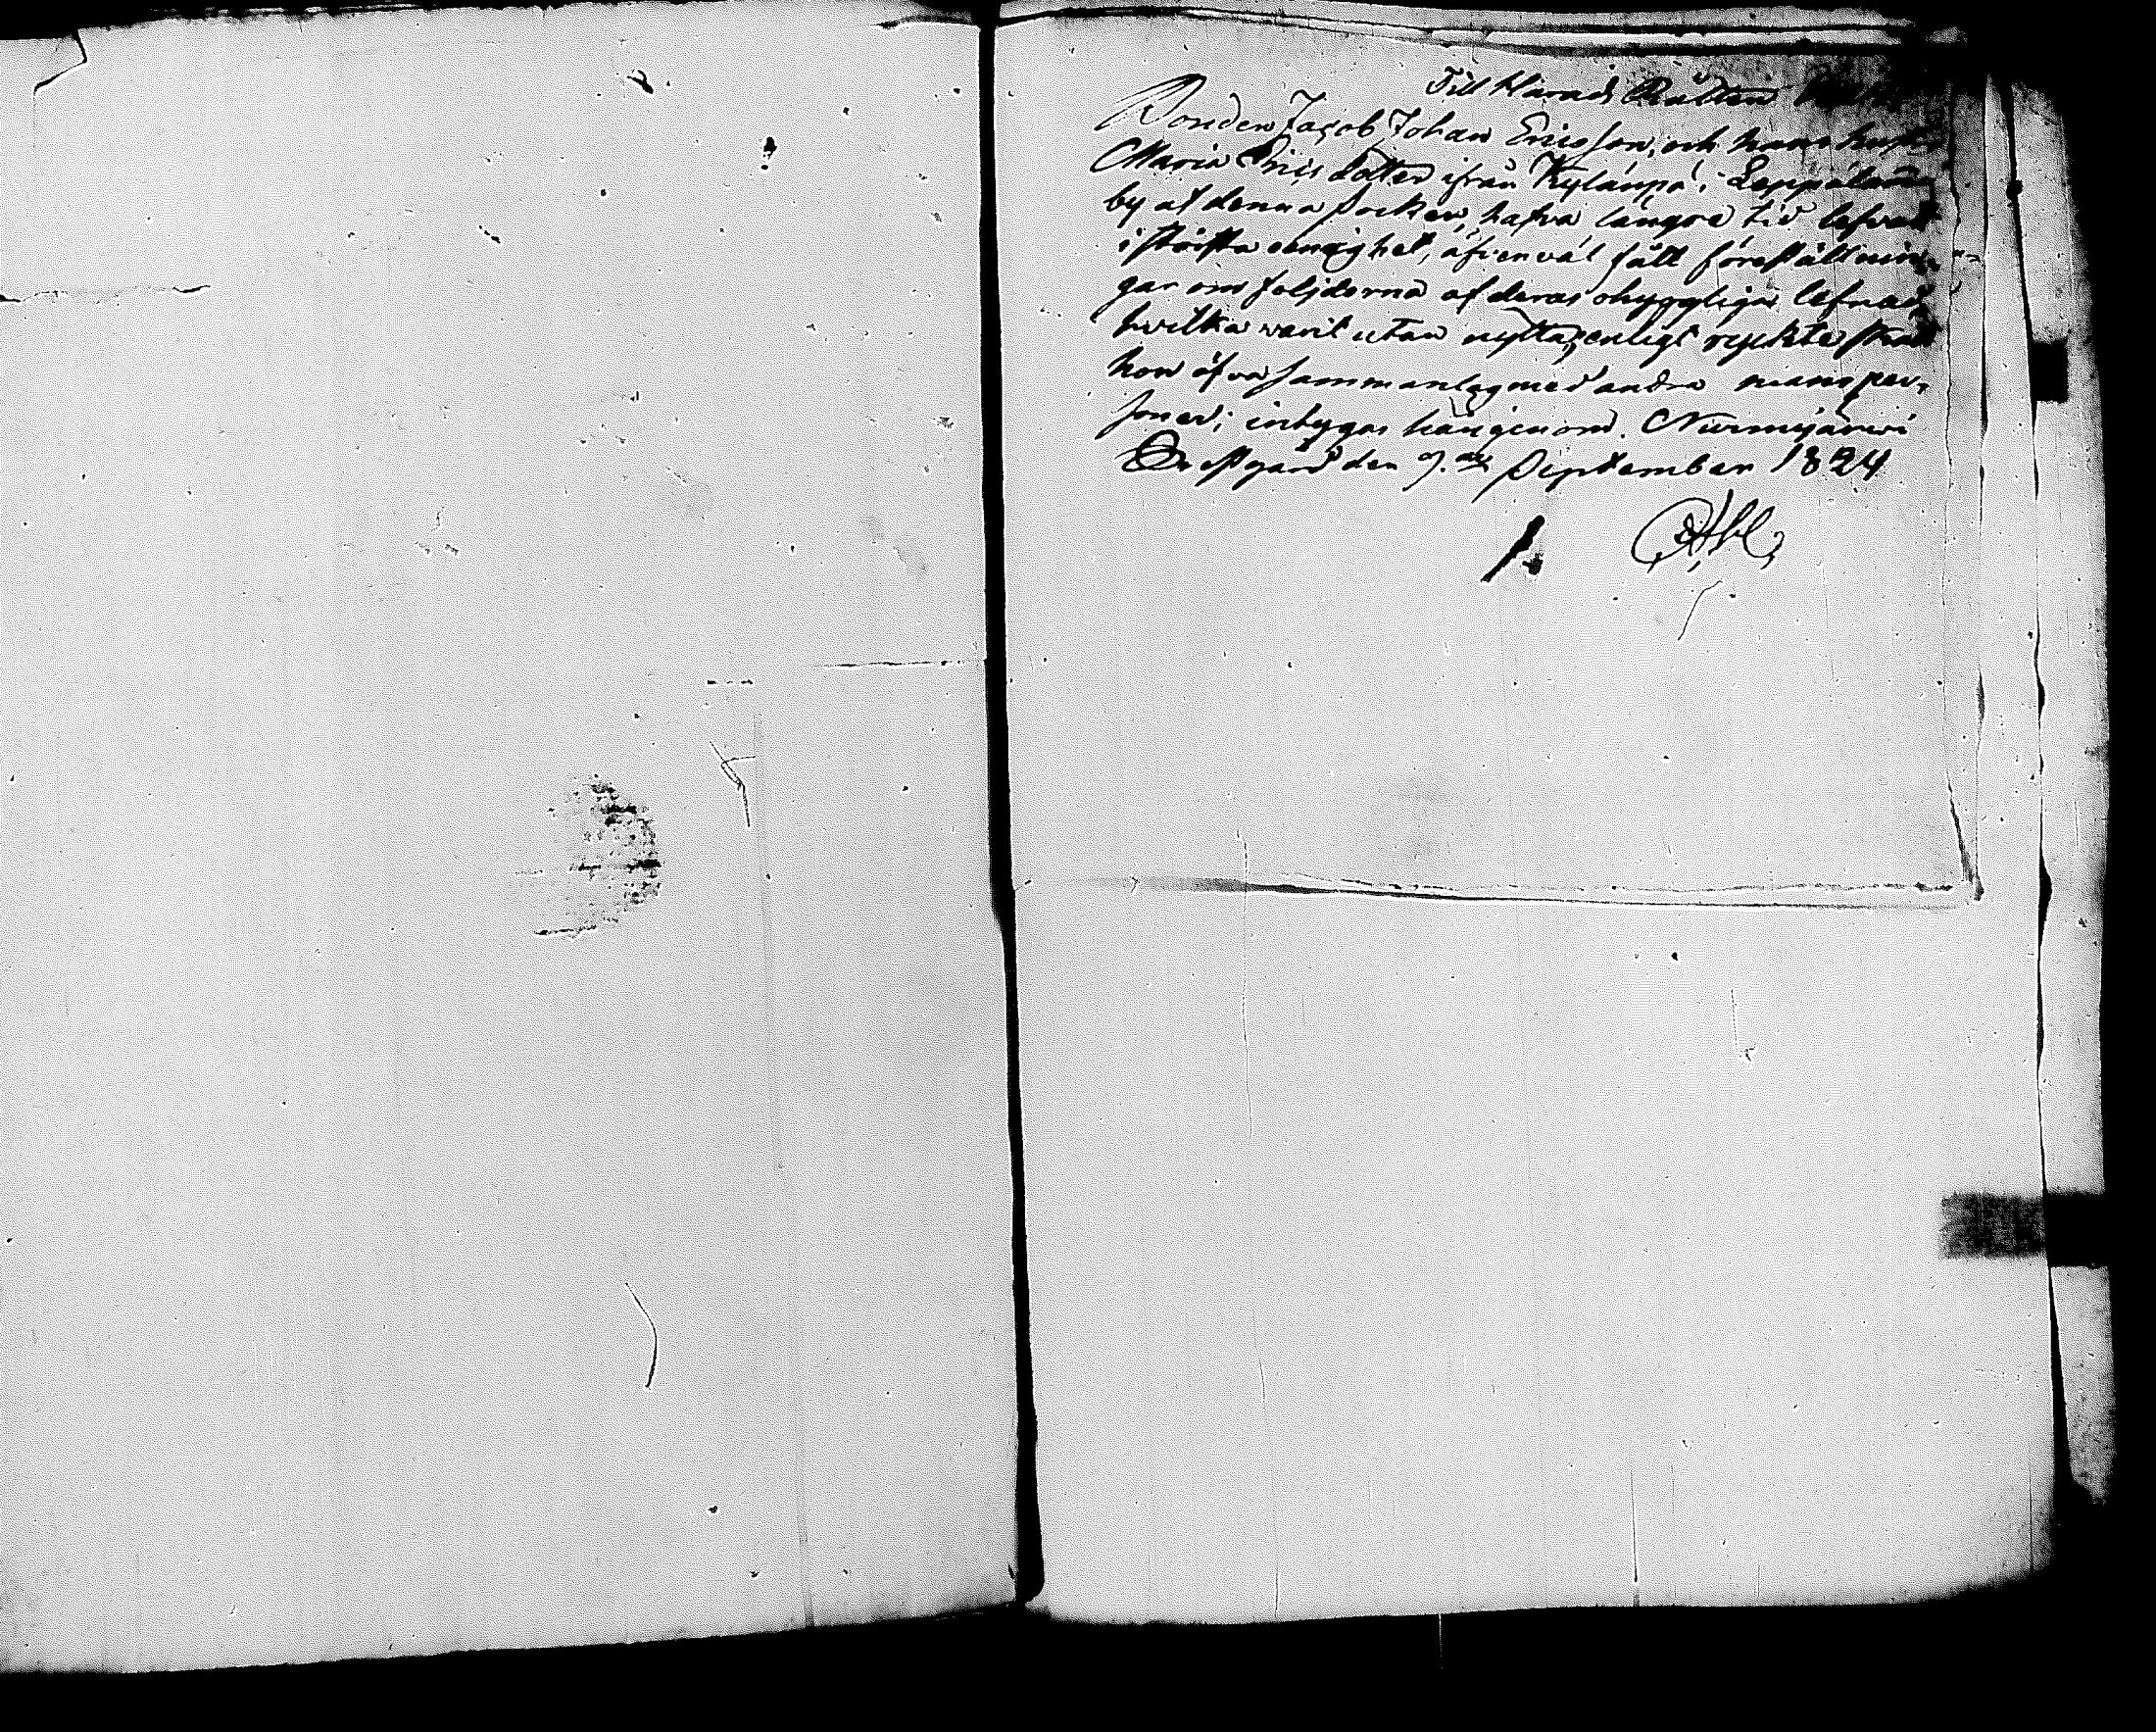 Till Härads Rätten
Bonden Jacob Johan Ericsson, och hans hustru
Maria Erics dotter ifrån Kylänpä i Leppälam
by af denna socken, hafva längre tid lefvat
i största oenighet, äfven väl fått föreställnin-
gar om följderna af deras ohyggliga lefnad,
hvilka varit utan nytta, enligt ryckte skall
hon öfva sammanlag med andra mansper-
soner; inbygas härigenom. Nurmijärwi
Prestgård den 9.de September 1824